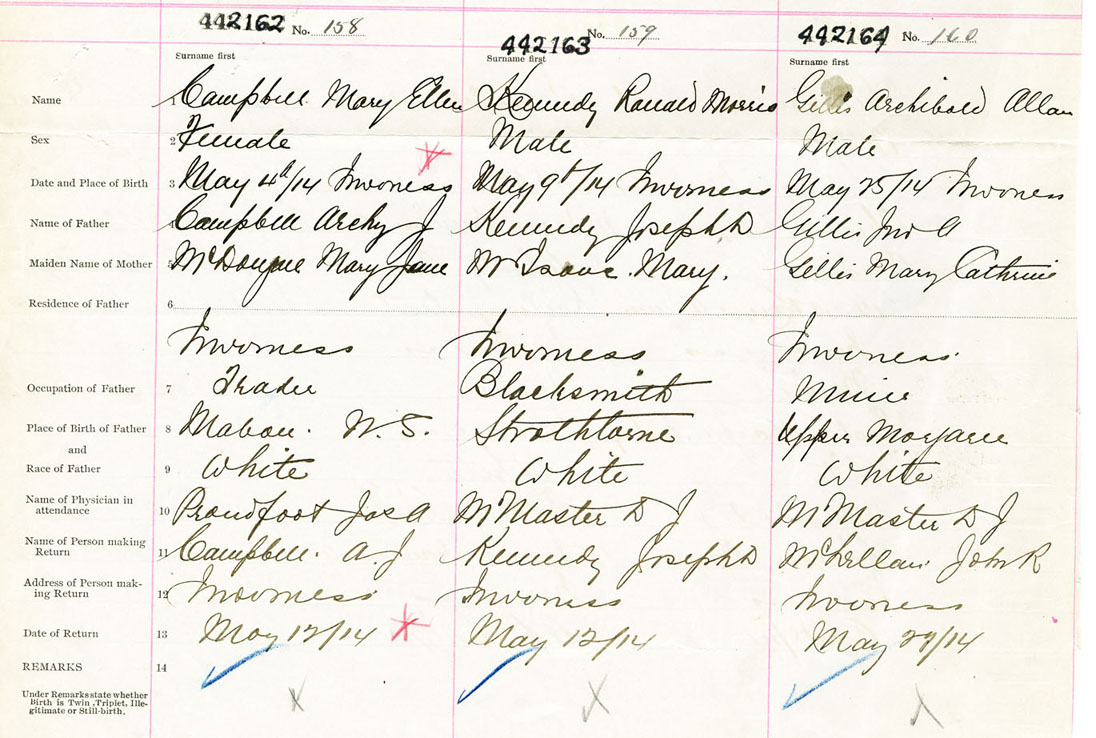 442162 No. 158 442163 No. 159 442164 No. 160
Surname first Surname first Surname first
Name 1 Campbell Mary Ellen Kennedy Ronald Morris Gillis Archibald Allan
Sex 2 Female Male Male
Date and Place of Birth 3 May 4th/14 Inverness May 9th/14 Inverness May 25/14 Inverness
Name of Father 4 Campbell Archy J Kennedy Joseph D Gillis Jno A
Maiden Name of Mother 5 Mary Jane McIsaac Mary. Gillis Mary Cathrine
Residence of Father 6
Inverness Inverness Inverness
Occupation of Father 7 Trader Blacksmith Miner
Place of Birth of Father 8 Mabou. N.S. Strathlorne Upper Margaree
and
Race of Father 9 White White White
Name of Physician in
attendance 10 Proudfoot Jas A McMaster D J McMaster D J
Name of Person making
Return 11 Campbell. A. J Kennedy Joseph D McLellan John R
Address of Person mak-
ing Return 12 Inverness Inverness Inverness
Date of Return 13 May 12/14 May 12/14 May 27/14
REMARKS 14
Under Remarks state whether
Birth is Twin, Triplet, Ille-
gitimate or Still-birth.